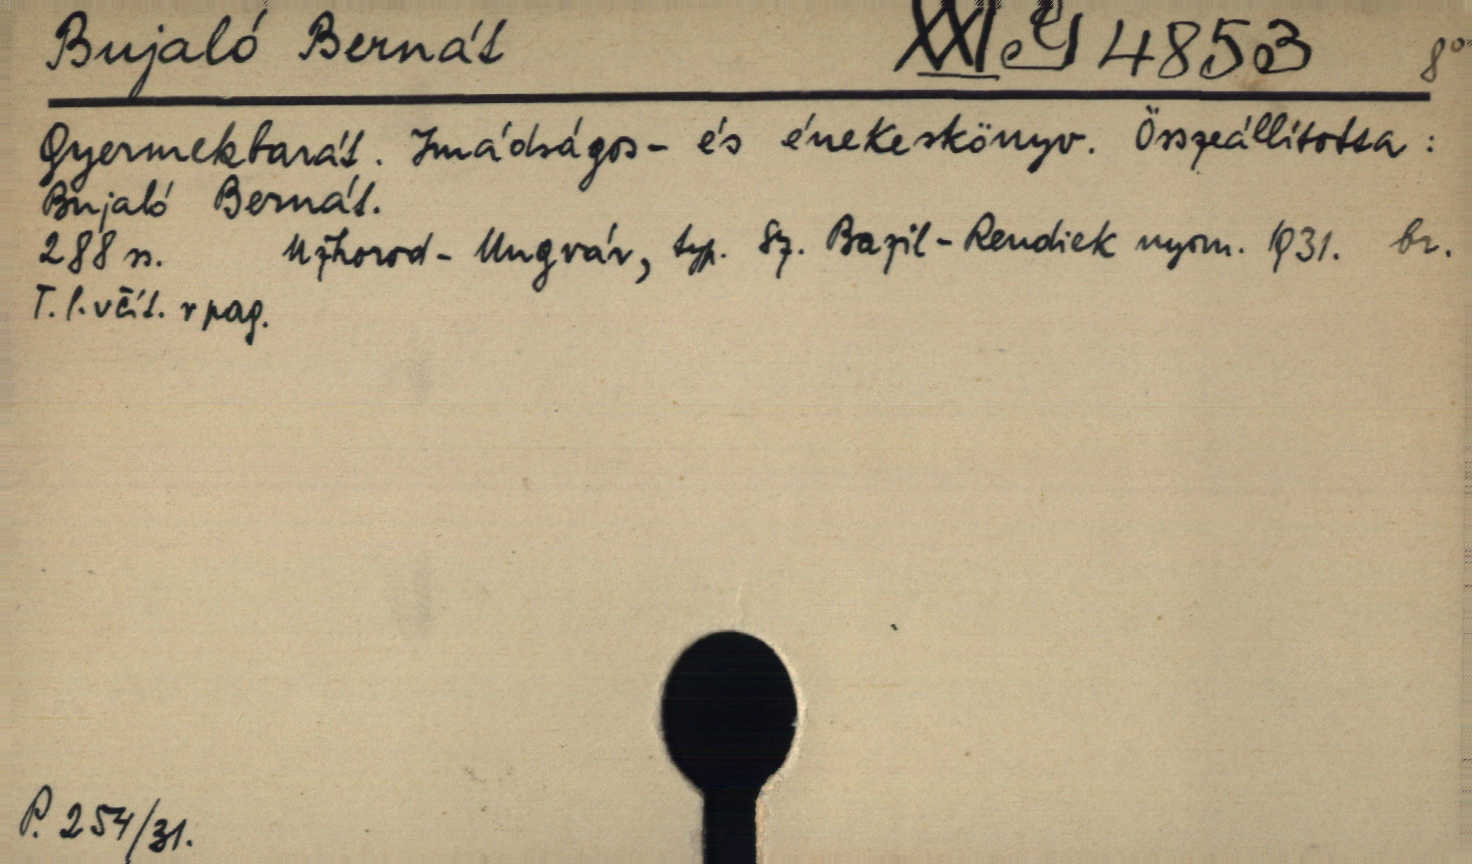 Bujaló Bernát XXI J 4853 8°
Gyermekbarát. Imádságos- és énekeskönyv. Összeállította:
Bujaló Bernát.
288 s. Užhorod - Ungvár, typ. Sz. Bazil-Rendiek nyom. 1931. br.
T. l. včít. v pag.
P. 254/31.